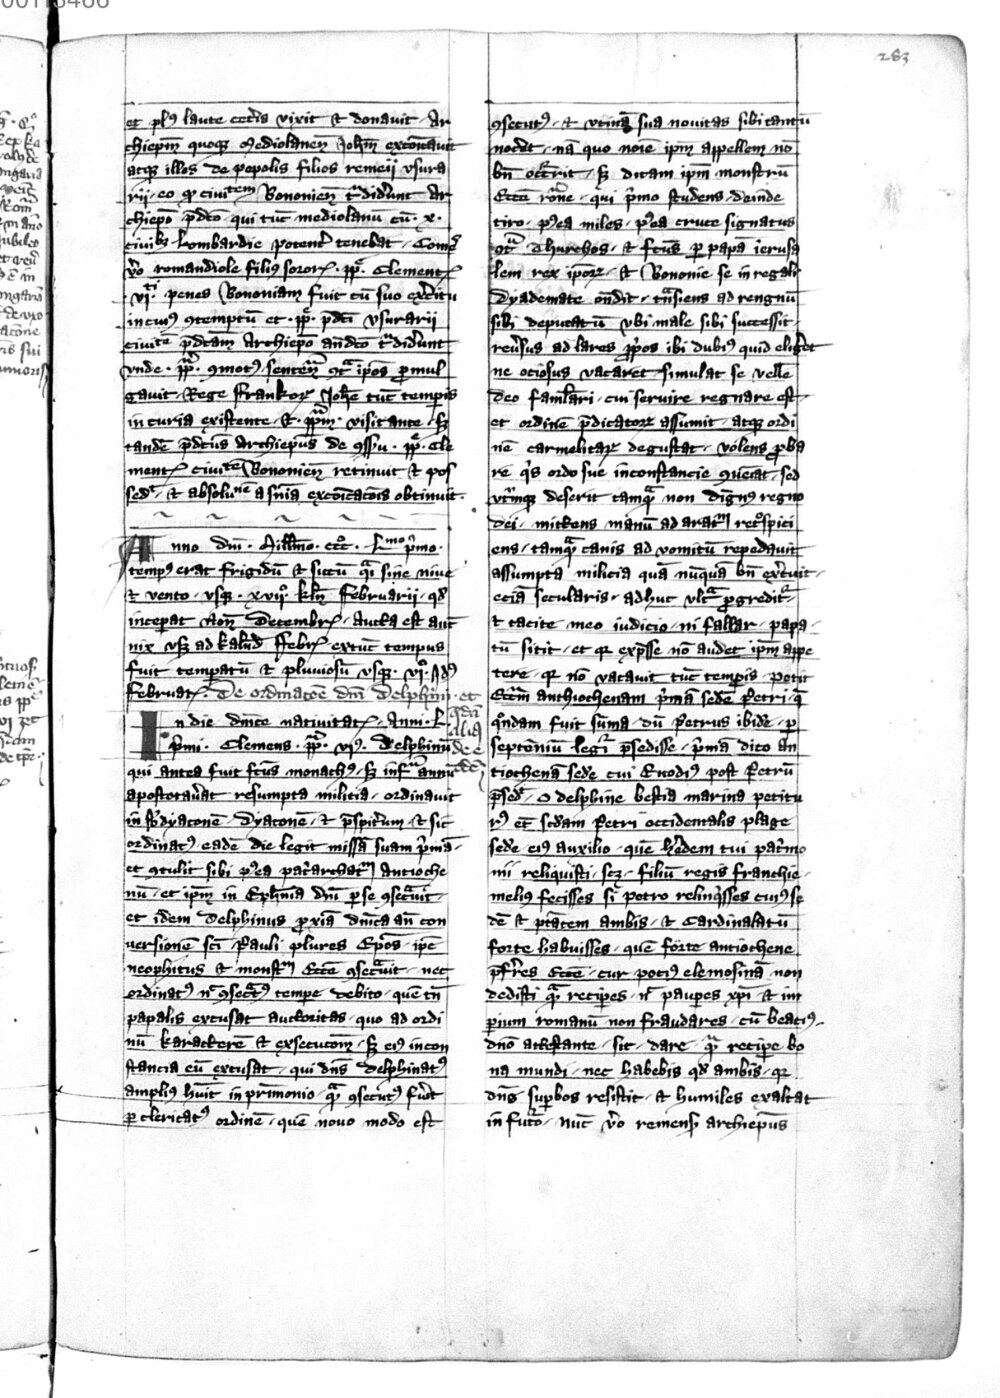 283
et plus laute ceteris vixit et donavit. Ar
chiepm quoque Mediolanen Johem excoicavit
atque illos de pepolis filios remeii usura
rii. eo quod civitatem Bononien tradiderunt Ar
chiepo pdicto. qui tunc mediolanum cum .x.
civibus Lombardie potenter tenebat. Comes
vero romandiole filius sororis .pp. Clementis
.vi. penes Bononiam fuit cum suo exercitu
in cuius contemptum et .pp. pdicti usurarii
civitatem pdictam Archiepo andicto tradiderunt
unde .pp. comotus sententiam contra ipsos promul
gavit. Rege Frankorum Johe tunc temporis
in curia existente. et .ppm. visitante. sed
tandem pdictus Archiepus de consensu .pp. Cle
mentis civitatem Bononien retinuit et pos
sedit. et absolutionem a sentencia excoicacois obtinuit.
Anno dni. Millmo. ccco. Lmo primo.
tempus erat frigidum et siccum quasi sine nive
et vento. usque .xvii. kln Februarii. quod
inceperat Non Decembris. Aucta est autem
nix usque ad kalend Febr extunc tempus
fuit temperatum et pluviosum usque .vi. Idus
Februar. De ordinacoe dni Delphini. et
quedam alia de eodem
In die dnice nativitatis. Anni. L
primi. Clemens .pp. vi. Delphinum
qui antea fuit fcus monachus. sed infra annum
apostotaverat resumpta milicia. ordinavit
in subdyaconem. Dyaconem. et prespiterum et sic
ordinatus eadem die legit missam suam primam.
et contulit sibi postea patriarchatum Antioche
num. et ipsum in Ephania dni per se consecravit.
et idem Delphinus proxima dnica ante con
versionem sci Pauli plures Epos. ipse
neophitus et monstrum Ecce consecravit. nec
ordinatus nec consecratus tempore debito. quem tamen
papalis excusat auctoritas. quo ad ordi
num karacterem et exsecucionem. sed eius incon
stancia eum excusat. qui dns Delphinatus
amplius habuit in primonio. quam consecutus fuerit
per clericatus ordinem. quem novo modo est
consecutus. et utinam sua novitas sibi tantum
noceret. nam quo noie ipsum appellem non
bene occurrit. sed dicam ipsum monstrum
Ecce ratione. qui primo studens. deinde
tiro. postea miles. postea cruce signatus
contra Thurchos. et fcus per papam ierusa
lem rex ipsorum. et Bononie se in regali
Dyademate ostendit. transiens ad rengnum
sibi deputatum ubi male sibi successit.
reversus ad lares proprios ibi dubius quid eligeret
ne ociosus vacaret simulat se velle
deo famulari. cui servire regnare est.
et ordinem predicatorum assumit. atque ordi
nem carmelitarum degustat. volens proba
re quis ordo sue inconstancie conveniat. sed
utrumque deserit tamquam non dignus regno
dei. mittens manum ad aratrum retrospici
ens. tamquam canis ad vomitum repedavit
assumpta milicia quam nunquam bene exercuit.
eciam secularis. adhuc ultra progreditur.
et tacite meo iudicio. ni fallar. papa
tum sitit. et quia expresse non audet ipsum appe
tere. quia non vacavit tunc temporis petit
Eccam anthiochenam primam sedem Petri. que
quondam fuit summa dum Petrus ibidem. per
septennium legitur presedisse. primam dico an
tiochenam sedem cui Evodius post Petrum
presedit. O delphine bestia marina petitu
rus es secundam Petri occidentalis plage
sedem eius auxilio. quem heredem tui patrimo
nii reliquisti. scilicet. filium regis franchie.
melius fecisses si Petro reliquisses cuius se
dem et potestatem ambis. et Cardinalatum
forte habuisses. quem forte antiochene
preferres Ecce. cur pocius elemosinam non
dedisti quam reciperes. ut pauperes xpi et im
perium romanum non fraudares. cum beatius.
dno attestante. sit. dare. quam recipere bo
na mundi. nec habebis quod ambis. quia
dns superbos resistit. et humiles exaltat
in futuro. Nunc vero remensis archiepus